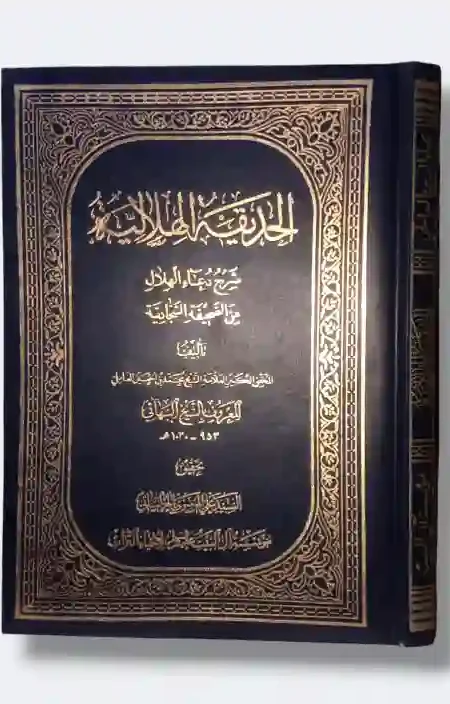 الحديقة الهلالية
شرح دعاء الهلال
من الصحيفة السجادية
تأليف
المحقق الكبير العلامة الشيخ محمد بن الحسين العاملي
المعروف بالشيخ البهائي
٩٥٣ - ١٠٣٠ هـ
تحقيق
السيد علي الموسوي الخراساني
مؤسسة آل البيت عليهم السلام لإحياء التراث